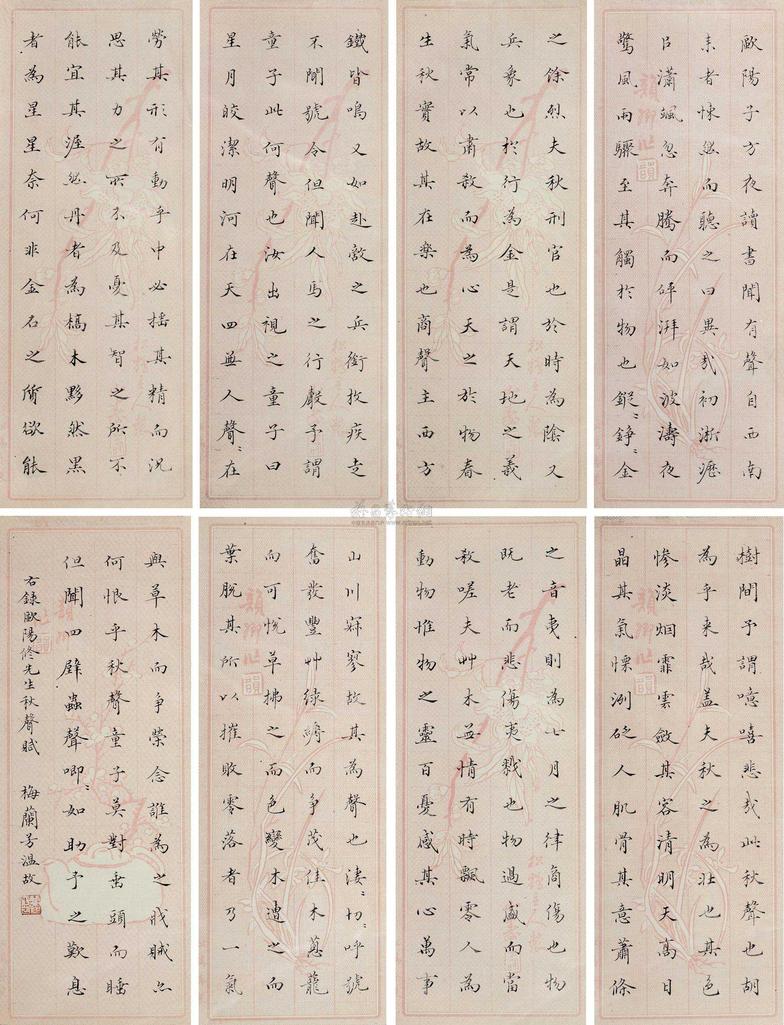 歐陽子方夜讀書聞有聲自西南
來者悚然而聽之曰異哉初淅瀝
以瀟颯忽奔騰而砰湃如波濤夜
驚風雨驟至其觸於物也鏦〻錚〻金
鐵皆鳴又如赴敵之兵銜枚疾走
不聞號令但聞人馬之行聲予謂
童子此何聲也汝出視之童子曰
星月皎潔明河在天四無人聲〻在
樹間予謂噫嘻悲哉此秋聲也胡
為乎來哉蓋夫秋之為壯也其色
慘淡烟霏雲斂其容清明天高日
晶其氣慄冽砭人肌骨其意蕭條
山川寂寥故其為聲也淒〻切〻呼號
奮發豐艸綠縟而争茂佳木葱蘢
而可悅草拂之而色變木遭之而
葉脫其所以摧敗零落者乃一氣
之餘烈夫秋刑官也於時為陰又
兵象也於行為金是謂天地之義
氣常以肅殺而為心天之於物春
生秋實故其在樂也商聲主西方
之音夷則為七月之律商傷也物
既老而悲傷夷戮也物過盛而當
殺嗟夫艸木無情有時飄零人為
動物惟物之靈百憂感其心萬事
勞其形有動乎中必搖其精而況
思其力之所不及憂其智之所不
能宜其渥然丹者為槁木黟然黑
者為星星奈何非金石之質欲能
與草木而争榮念誰為之戕賊亦
何恨乎秋聲童子莫對垂頭而睡
但聞四壁蟲聲唧〻如助予之歎息
右錄歐陽修先生秋聲賦 梅蘭芳溫故